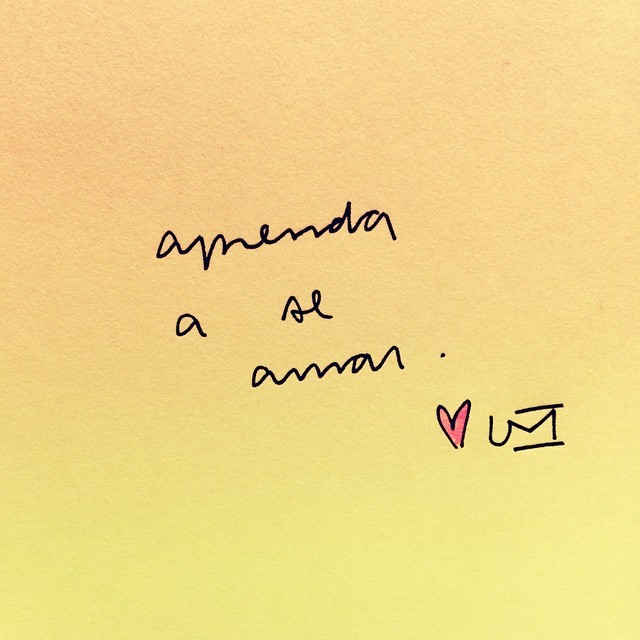 aprenda
a se
amar.